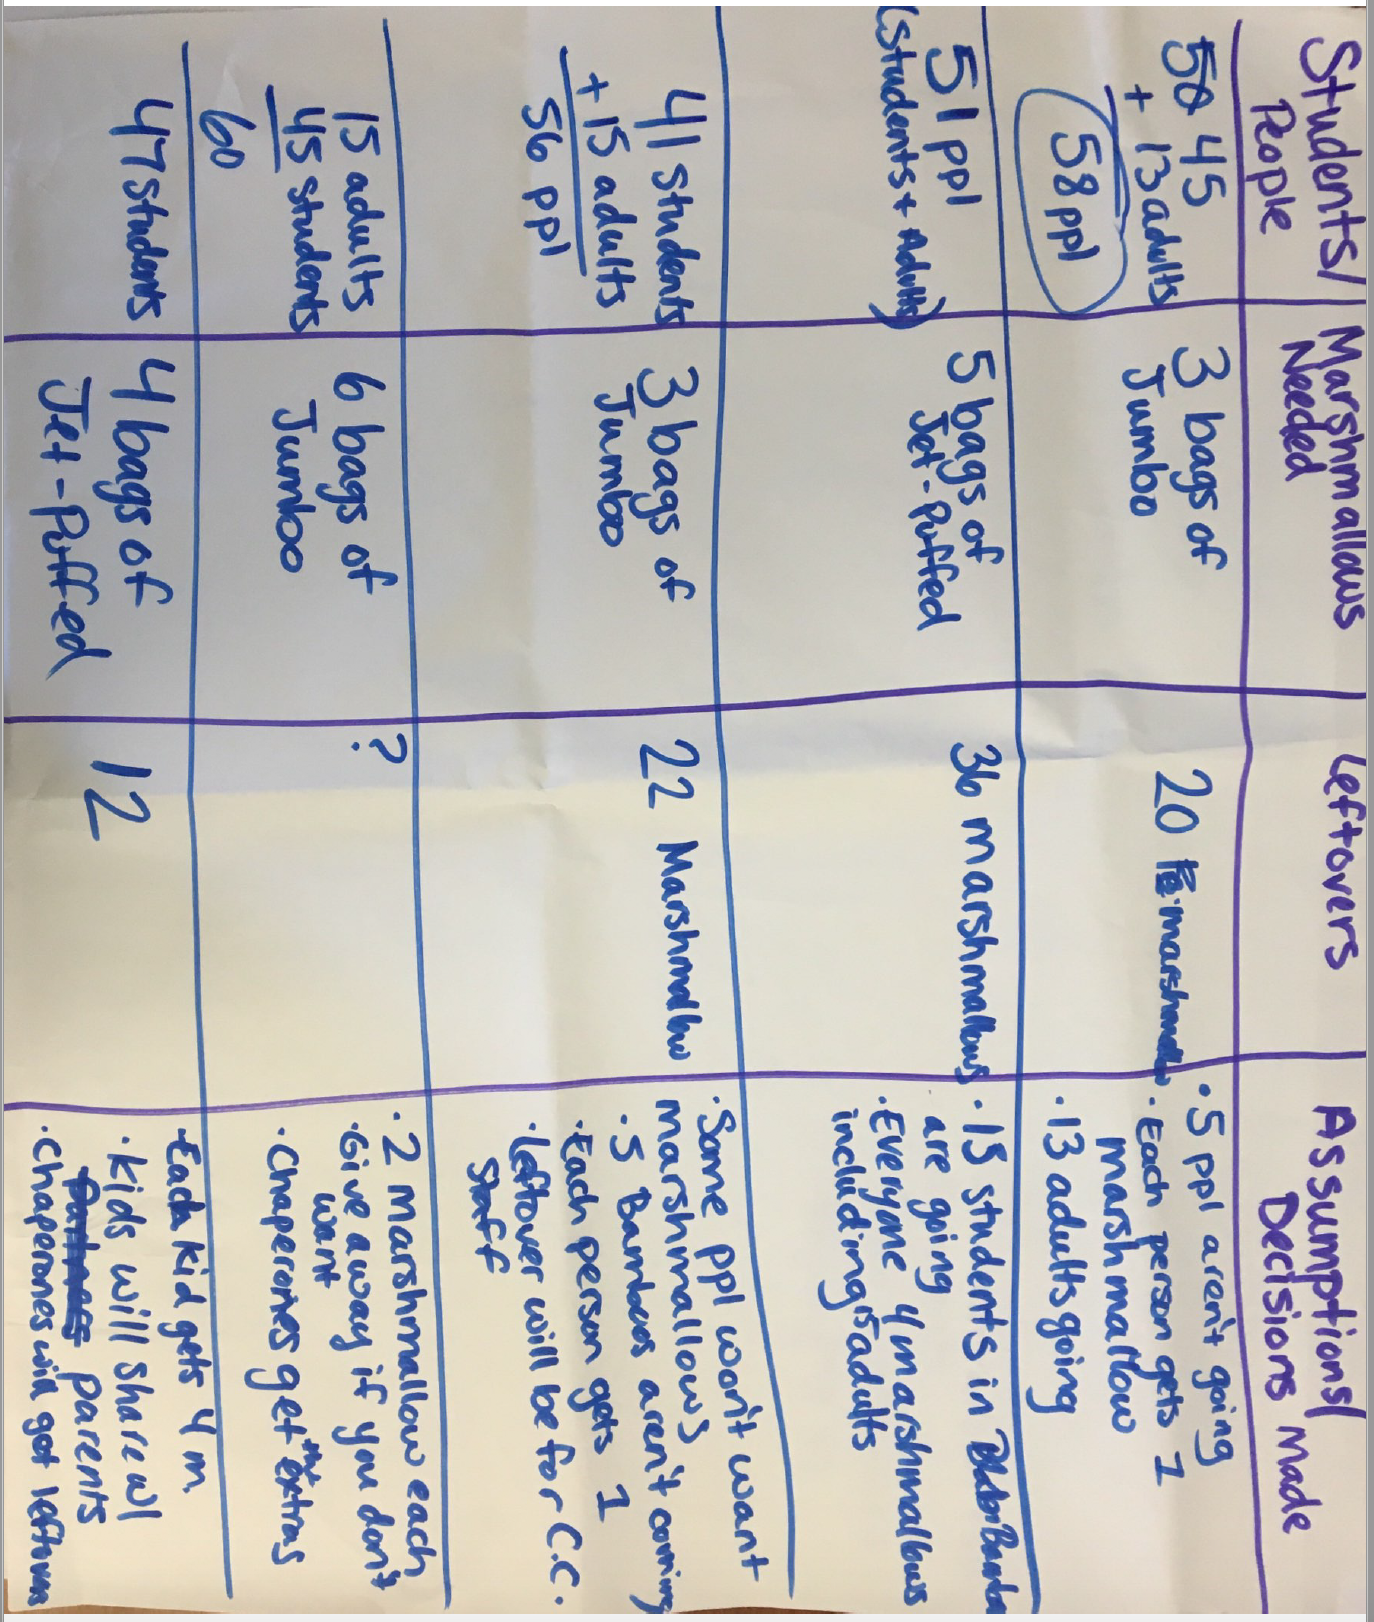 Students/
People
Marshmallows
Needed
Leftovers
Assumptions/
Decisions made
50 45
+ 13 adults
58 ppl
3 bags of
Jumbo
20 marshmallow
• 5 ppl aren't going
• Each person gets 1
marshmallow
• 13 adults going
51 ppl
(Students + Adults)
5 bags of
Jet-Puffed
36 marshmallows
• 15 students in
are going
• Everyone 4 marshmallows
including 15 adults
41 students
+ 15 adults
56 ppl
3 bags of
Jumbo
22 Marshmallow
• Some ppl won't want
marshmallows
• 5 aren't coming
• Each person gets 1
• Leftover will be for C.C.
Staff
15 adults
45 students
60
6 bags of
Jumbo
?
• 2 marshmallow each
• Give away if you don't
want
• Chaperones get the extras
47 students
4 bags of
Jet-Puffed
12
• Each kid gets 4 m
• kids will share w/
parents
• chaperones will get leftovers